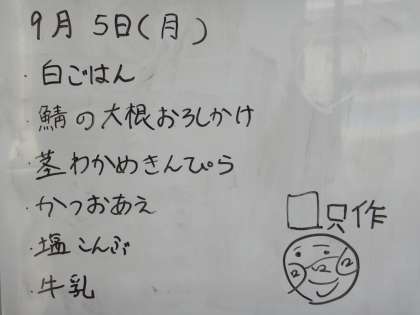 9月 5日(月)
・白ごはん
・鯖の大根おろしかけ
・茎わかめきんぴら
・かつおあえ
・塩こんぶ
・牛乳
作